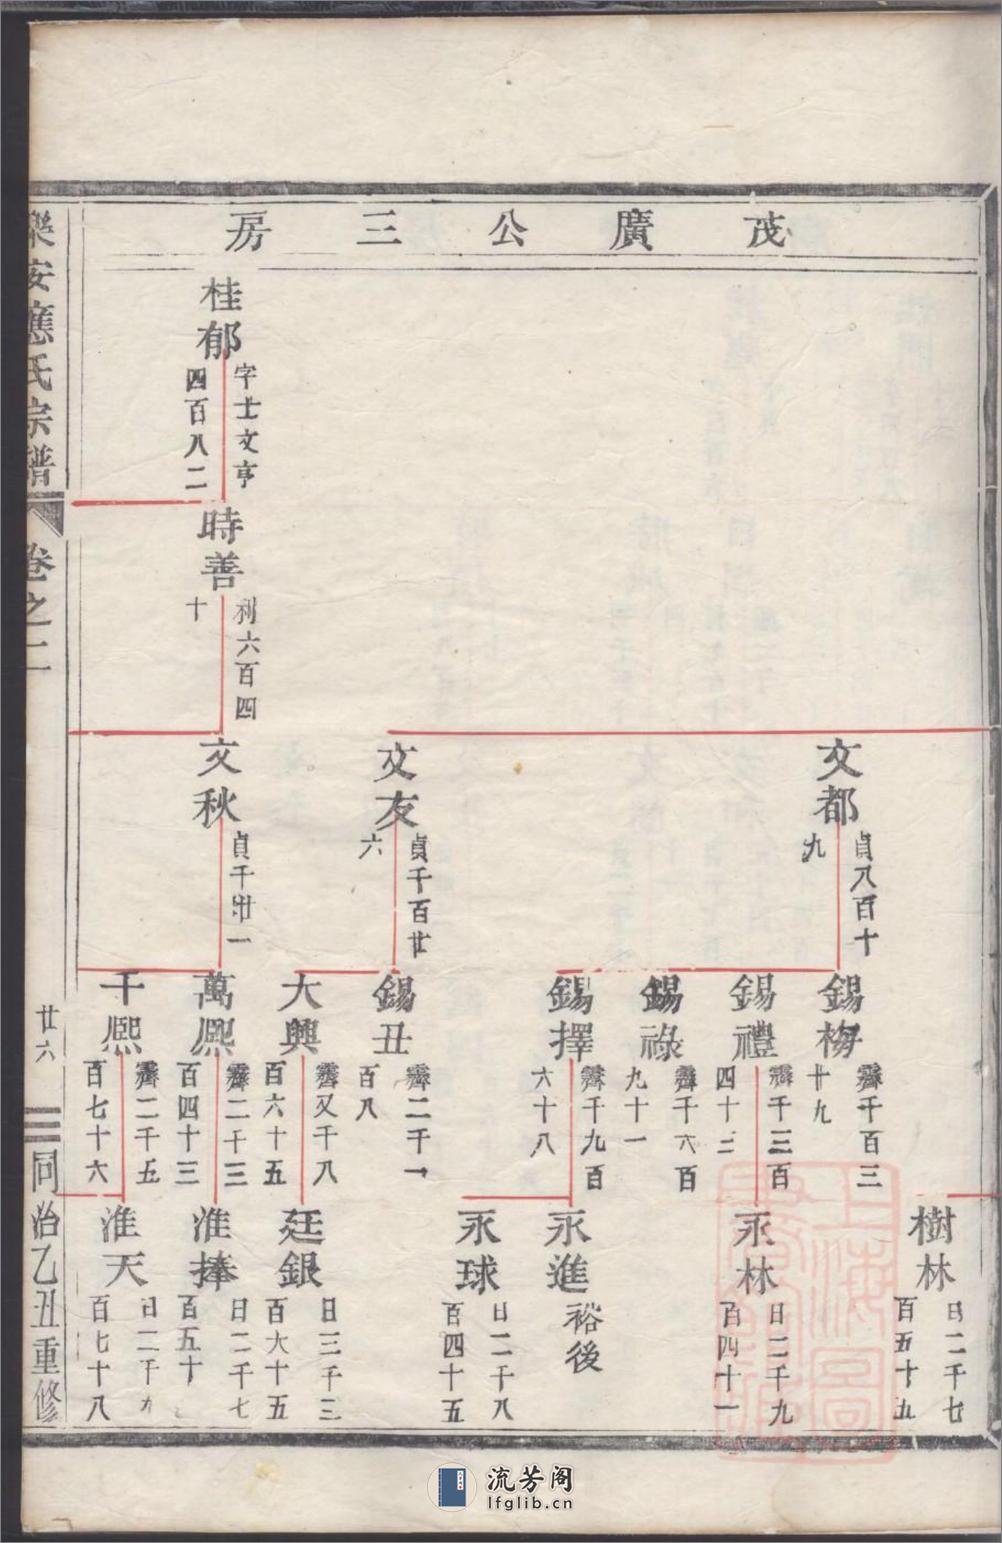 茂廣公三房
桂郁
字士文亨
四百八二
時善
利六百四
十
文都
貞八百十
九
文友
貞千百廿
六
文秋
貞千卅一
錫梅
霽千百三
廿九
錫禮
霽千三百
四十三
錫祿
霽千六百
九十一
錫擇
霽千九百
六十八
錫丑
霽二千一
百八
大興
霽又千八
百六十五
萬熙
霽二千三
百四十三
千熙
霽二千五
百七十六
樹林
日二千七
百五十五
永林
日二千九
百四十一
永進
裕後
永球
日二千八
百四十五
廷銀
日三千三
百六十五
淮捧
日二千七
百五十
淮天
日二千九
百七十八
樂安應氏宗譜
卷之二
廿六
同治乙丑重修
上海圖書館藏
流芳阁
lfglib.cn